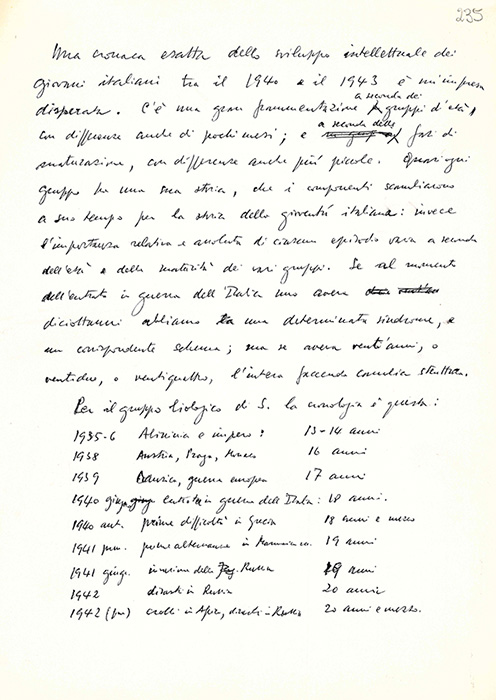 235
Una cronaca esatta dello sviluppo intellettuale dei
giovani italiani tra il 1940 e il 1943 è un'impresa
disperata. C'è una gran frammentazione a seconda dei gruppi d'età,
con differenze anche di pochi mesi; e a seconda delle fasi di
maturazione, con differenze anche più piccole. Quasi ogni
gruppo ha una sua storia, che i componenti scambiarono
a suo tempo per la storia della gioventù italiana: invece
l'importanza relativa e assoluta di ciascun episodio varia a seconda
dell'età e della maturità dei vari gruppi. Se al momento
dell'entrata in guerra dell'Italia uno aveva
diciott'anni abbiamo una determinata sindrome, e
un corrispondente schema; ma se aveva vent'anni, o
ventidue, o ventiquattro, l'intera faccenda cambia struttura.
Per il gruppo biologico di S. la cronologia è questa:
1935-6 Abissinia e impero: 13-14 anni
1938 Austria, Praga, Monaco 16 anni
1939 Danzica, guerra europea 17 anni
1940 giugno entrata in guerra dell'Italia: 18 anni.
1940 aut. prime difficoltà in Grecia 18 anni e mezzo
1941 prim. prime alternanze in Marmarica. 19 anni
1941 giug. invasione della Russia 19 anni
1942 disastri in Russia 20 anni
1942 (fine) crolli in Africa, disastri in Russia 20 anni e mezzo.